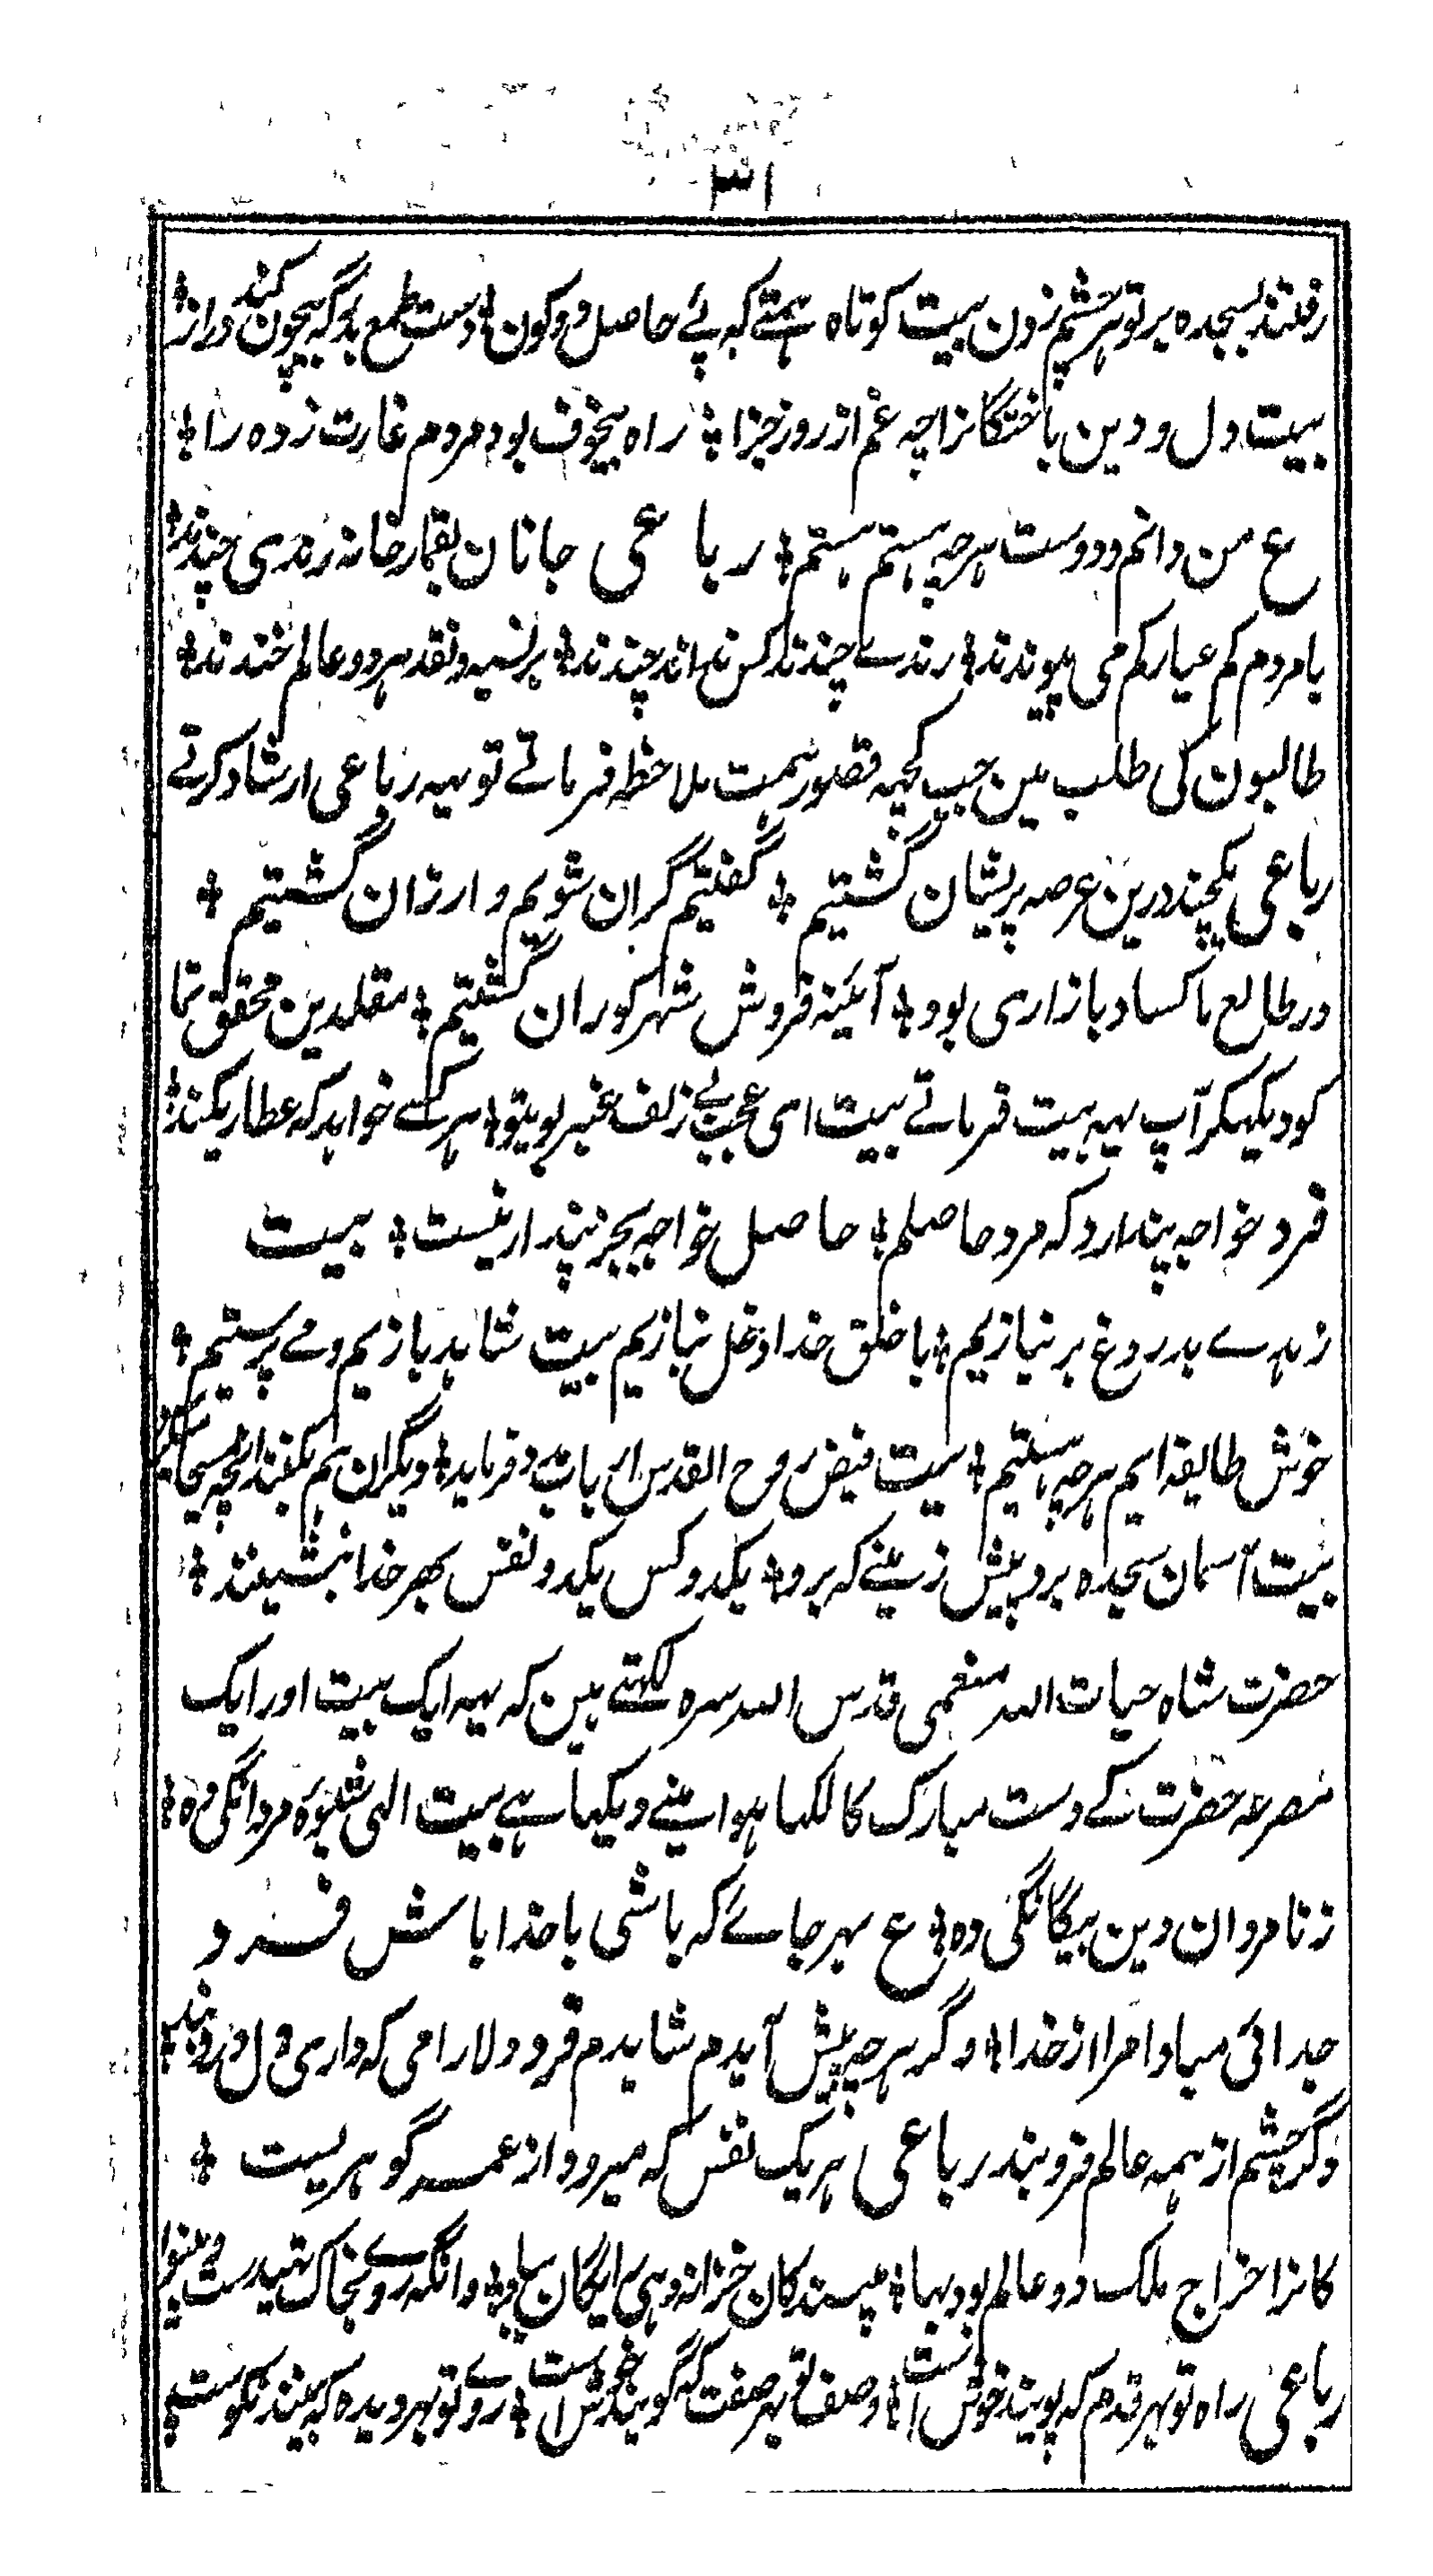 ۳۱
رفتند بسجدہ برتو ہر چشم زدن بیت کوتاہ ہمتے کہ پئے حاصل دوکون ؞ دست طمع بدرگہ بیچون کند دراز ؞
بیت دل و دین باختگانرا چہ غم از روز جزا ؞ راہ بیخوف بود مردم غارت زدہ را ؞
ع من دانم و دوست ہر چہ ہستم ہستم ؞ رباعی جانان بقمار خانہ رندی چندند ؞
با مردم کم عیار کم می پیوندند ؞ رندے چندند کس نداند چندند ؞ بر نسیہ و نقد ہر دو عالم خندند ؞
طالبون کی طلب مین جب کچہہ قصور ہمت ملاحظہ فرماتے تو یہہ رباعی ارشاد کرتے
رباعی یکچند درین عرصہ پریشان گشتیم ؞ گفتیم گران شویم و ارزان گشتیم ؞
در طالع ما کساد بازاری بود ؞ آئینہ فروش شہر کوران گشتیم ؞ مقلدین محقق نما
کو دیکہکر آپ یہہ بیت فرماتے بیت ای عجب بے زلف عنبر بویتو ؞ ہر کسے خواہد کہ عطاریکند ؞
فرد خواجہ پندارد کہ مرد حاصلم ؞ حاصل خواجہ بجز پندار نیست ؞ بیت
زہدے بدروغ بر نیازیم ؞ با خلق خدا دغل نبازیم بیت شاہد بازیم و مے پرستیم ؞
خوش طایفہ ایم ہر چہ ہستیم ؞ بیت فیض روح القدس ار باز مدد فرماید ؞ دیگران ہم بکنند انچہ مسیحا میکرد
بیت آسمان سجدہ برد پیش زمینے کہ برو ؞ یکدو کس یکدو نفس بہر خدا بنشینند ؞
حضرت شاہ حیات اللہ منعمی قدس اللہ سرہ لکہتے ہین کہ یہہ ایک بیت اور ایک
مصرعہ حضرت کے دست مبارک کا لکہا ہوا مینے دیکہا ہے بیت الہی شیوۂ مردانگی دہ ؞
زنا مردان دین بیگانگی دہ ؞ ع بہر جائے کہ باشی با خدا باش فرد
جدائی مبادا مرا از خدا ؞ دگر ہر چہ پیش آیدم شایدم فرد دلارامی کہ داری دل درو بند ؞
دگر چشم از ہمہ عالم فرو بند رباعی ہر یک نفس کہ میرود از عمر گوہریست ؞
کانرا خراج ملک دو عالم بود بہا ؞ مپسند کان خزانہ دہی رایگان بباد ؞ وانگہ روے بخاک تہیدست بے نوا
رباعی راہ تو بہر قدم کہ پویند خوش است ؞ وصف تو بہر صفت کہ گویند خوش است ؞ روے تو بہر دیدہ کہ بینند نکوست ؞